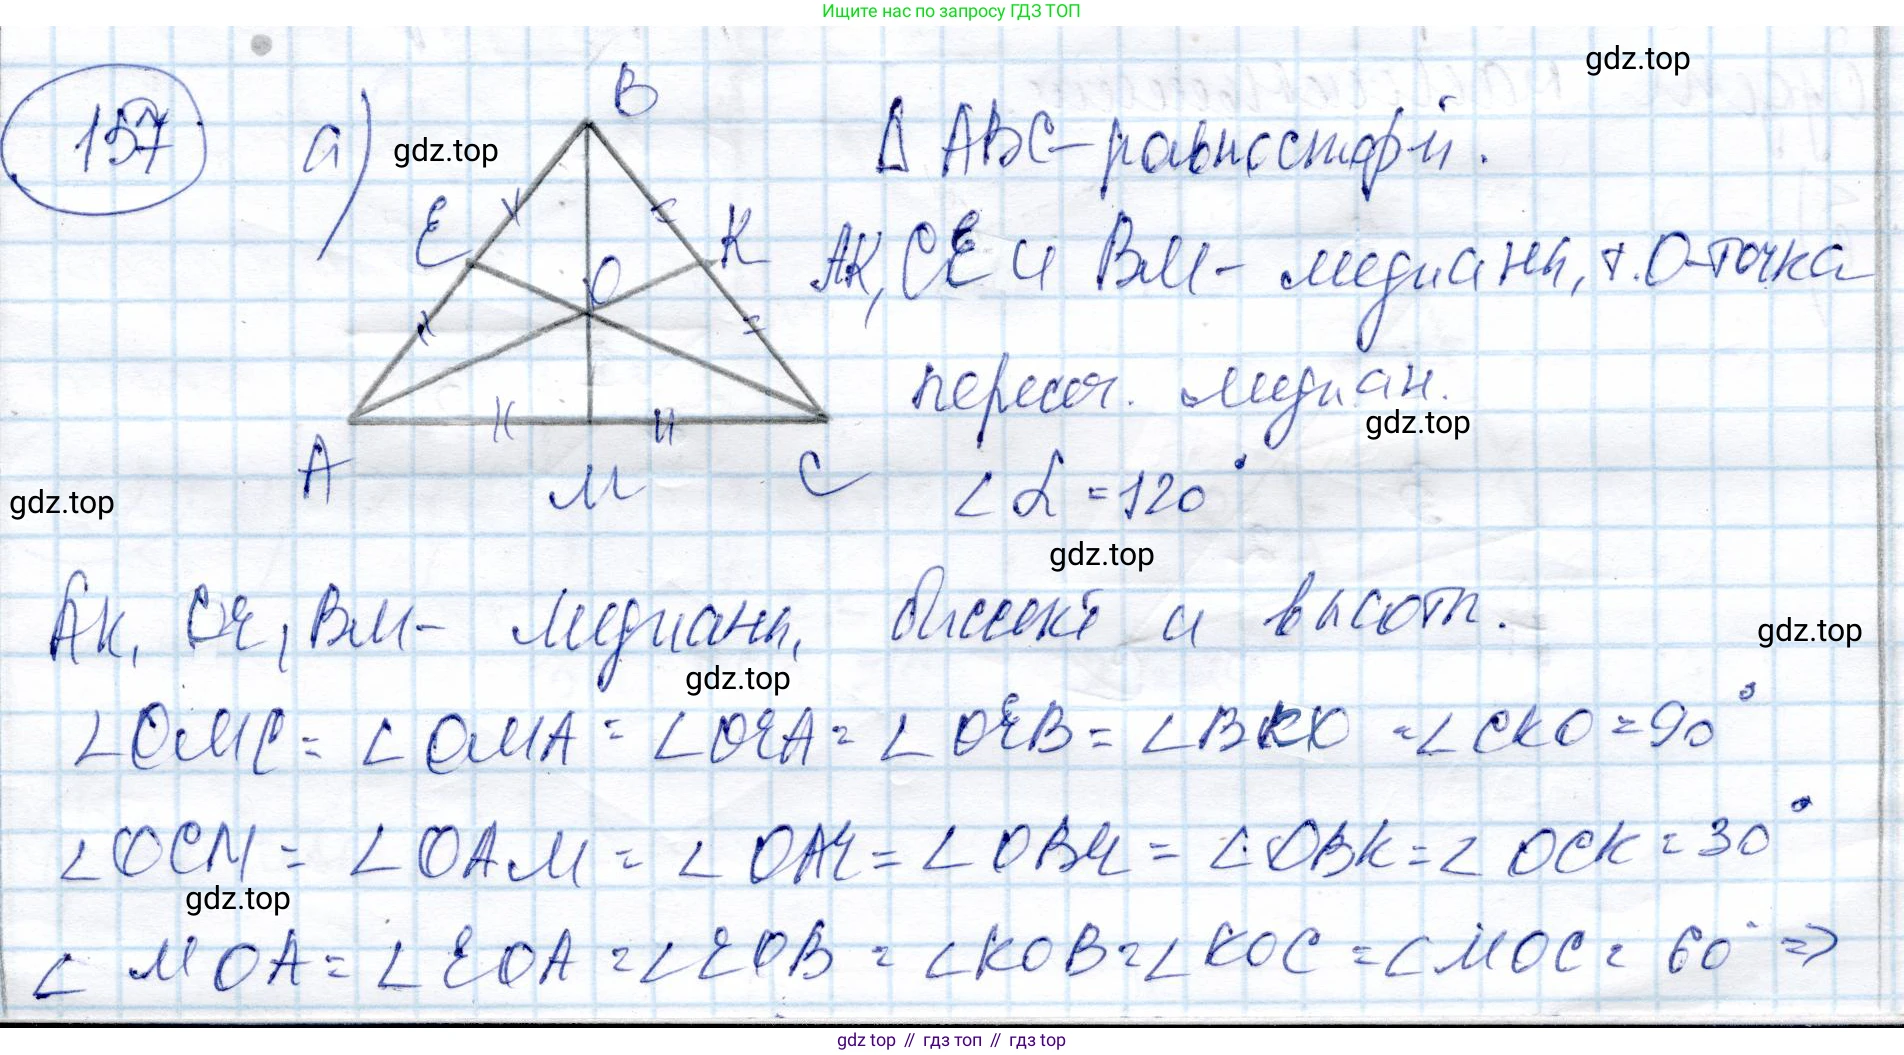 Ищите нас по запросу ГДЗ ТОП
gdz.top
157 а) B
gdz.top
Δ ABC - равностор й.
E K
AK, CE и BM - медианы, т. O - точка
O
пересеч. медиан.
gdz.top
A M C
∠α = 120°
gdz.top
gdz.top
AK, CE, BM - медианы, биссект и высоты.
gdz.top
gdz.top
∠OMC = ∠OMA = ∠OEA = ∠OEB = ∠BKO = ∠CKO = 90°
∠OCM = ∠OAM = ∠OAE = ∠OBE = ∠OBK = ∠OCK = 30°
gdz.top
∠MOA = ∠EOA = ∠EOB = ∠KOB = ∠KOC = ∠MOC = 60° ⇒
gdz top // гдз топ // гдз top